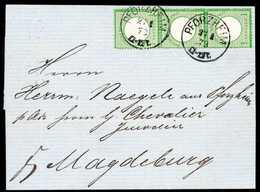 PFORZHEIM
PFORZHEIM
Herrn
Herrn Naegele aus Pforzheim
p Adr Herrn Chevalier
Juwelier
Magdeburg